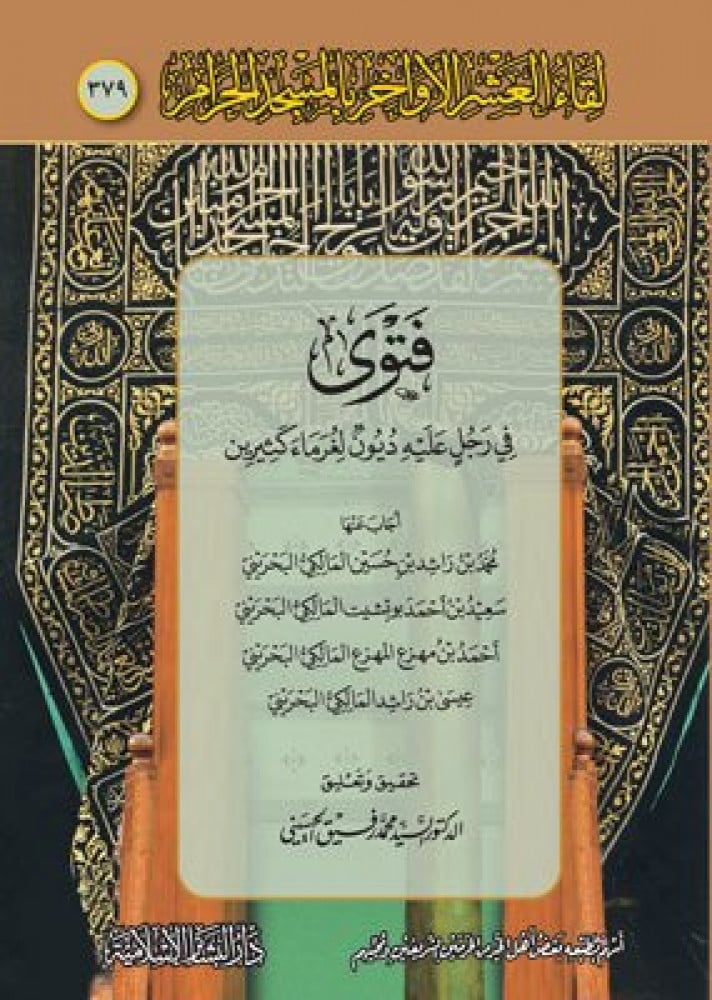 لِقَاءُ العَشْرِ الأَوَاخِرِ بِالمَسْجِدِ الحَرَامِ
٣٧٩
فَتْوَى
فِي رَجُلٍ عَلَيْهِ دُيُونٌ لِغُرَمَاءَ كَثِيرِين
أَجَابَ عَنْهَا
مُحَمَّدُ بْنُ رَاشِدِ بنِ حُسَيْن المَالِكِيُّ البَحْرَيْنِيّ
سَعِيْدُ بْنُ أَحْمَدَ بُوتشيت المَالِكِيُّ البَحْرَيْنِيّ
أَحْمَدُ بْنُ مهزع المهزع المَالِكِيُّ البَحْرَيْنِيّ
عِيسَى بْنُ رَاشِد المَالِكِيُّ البَحْرَيْنِيّ
تحقيق وتعليق
الدكتور السيد محمد رفيق الحسيني
أسهم بطبعه بعض أهل الخير من الحرمين الشريفين ومحبيهم
دار البشائر الإسلامية